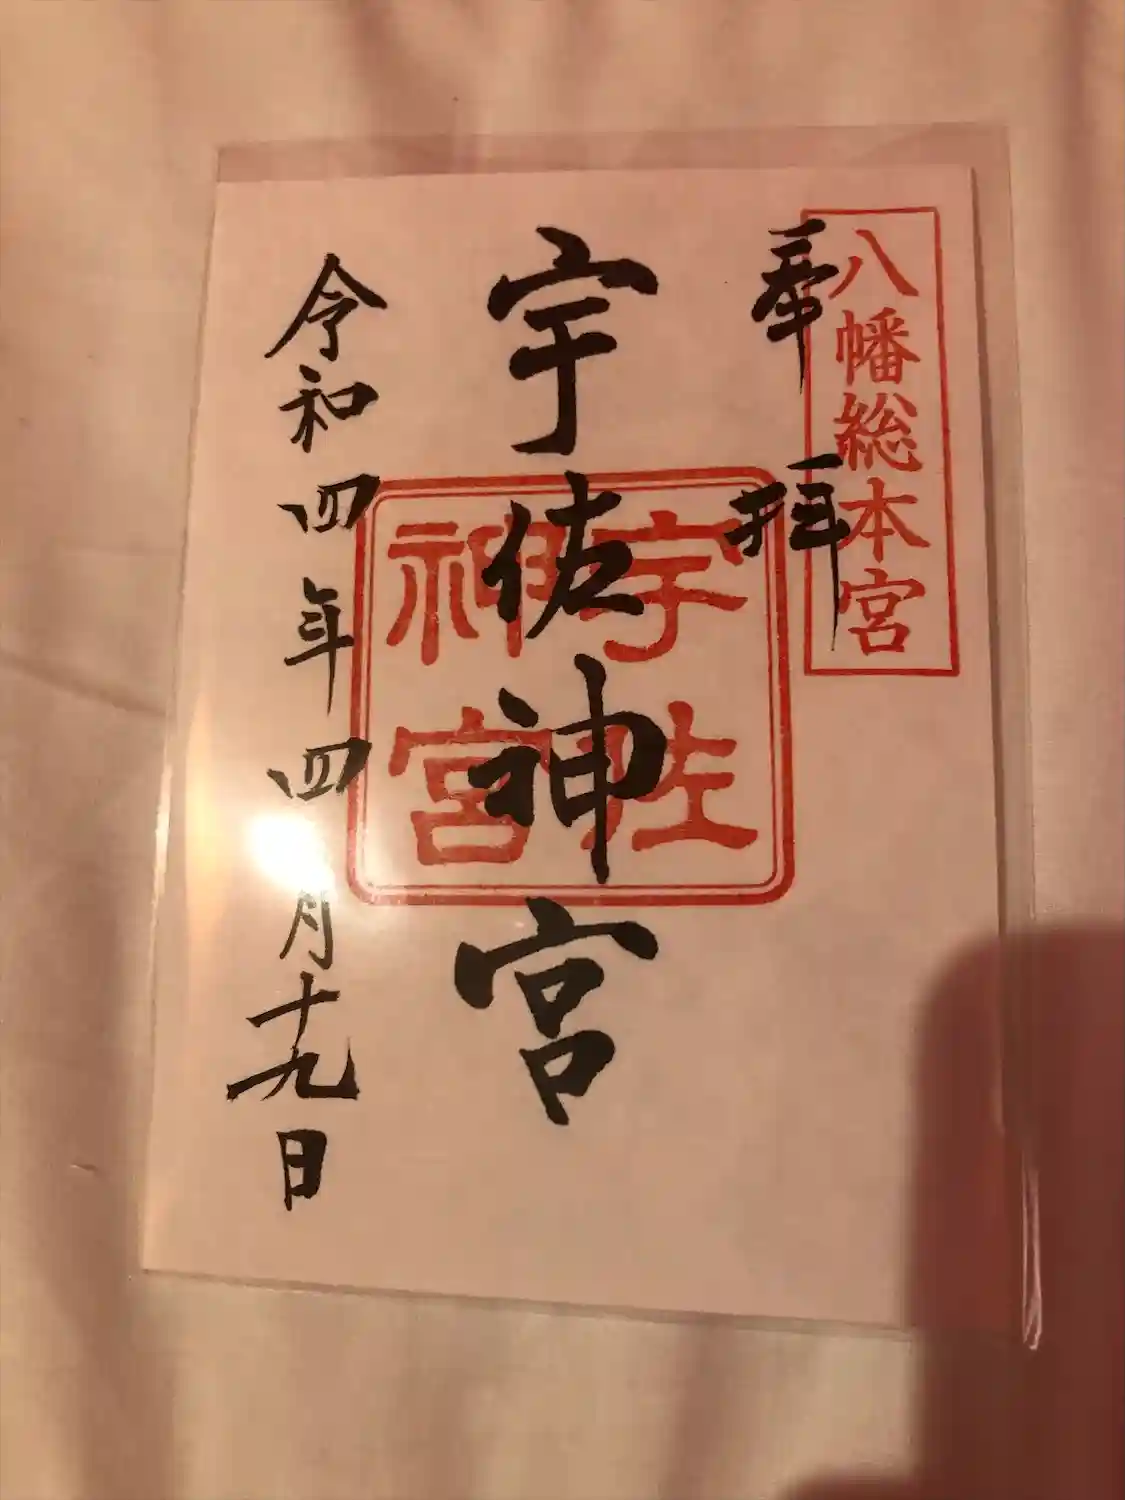 八幡総本宮
奉拝
宇佐神宮
宇佐
神宮
令和四年四月十九日